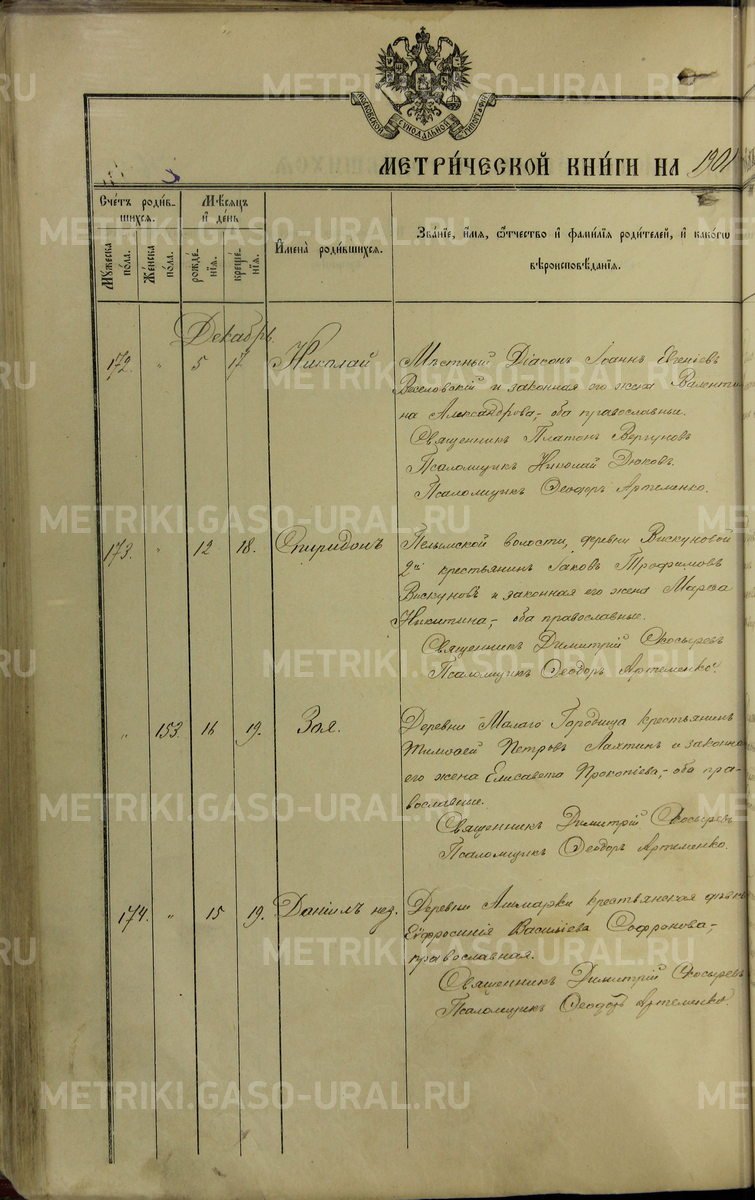 МОСКОВСКОЙ СѴНОДАЛЬНОЙ ТИПОГРАФІИ
МЕТРИ́ЧЕСКОЙ КНИ́ГИ НА 1901
Сче́тъ роди́вшихся.
Мѣ́сяцъ и҆ день
И҆мена̀ роди́вшихся.
Зва́ніе, и҆́мя, ѻ҆́тчество и҆ фами́лія роди́телей, и҆ како́гѡ
вѣроисповѣ́данія.
Мꙋ́жеска по́ла.
Же́нска по́ла.
рожде́нія.
креще́нія.
Декабрь
172. " 5 17 Николай
Мѣстный Діаконъ Іоаннъ Евгеніевъ
Веселовскій и законная его жена Валенти-
на Александрова,- оба православные.
Священникъ Платонъ Вергуновъ
Псаломщикъ Николай Дюковъ.
Псаломщикъ Ѳеодоръ Артеменко.
173. " 12 18. Спиридонъ
Пелымской волости, деревни Вискуновой
2й крестьянинъ Іаковъ Трофимовъ
Вискуновъ и законная его жена Марѳа
Никитина,- оба православные.
Священникъ Димитрій Скосыревъ
Псаломщикъ Ѳеодоръ Артеменко.
" 153. 16 19. Зоя.
Деревни Малаго Городища крестьянинъ
Тимоѳей Петровъ Лахтинъ и законная
его жена Елисавета Прокопіева,- оба пра-
вославные.
Священникъ Димитрій Скосыревъ
Псаломщикъ Ѳеодоръ Артеменко.
174. " 15 19. Даніилъ нез.
Деревни крестьянская дѣвка
Евфросинія Васильева Софронова,-
православная.
Священникъ Димитрій Скосыревъ
Псаломщикъ Ѳеодоръ Артеменко.
METRIKI.GASO-URAL.RU